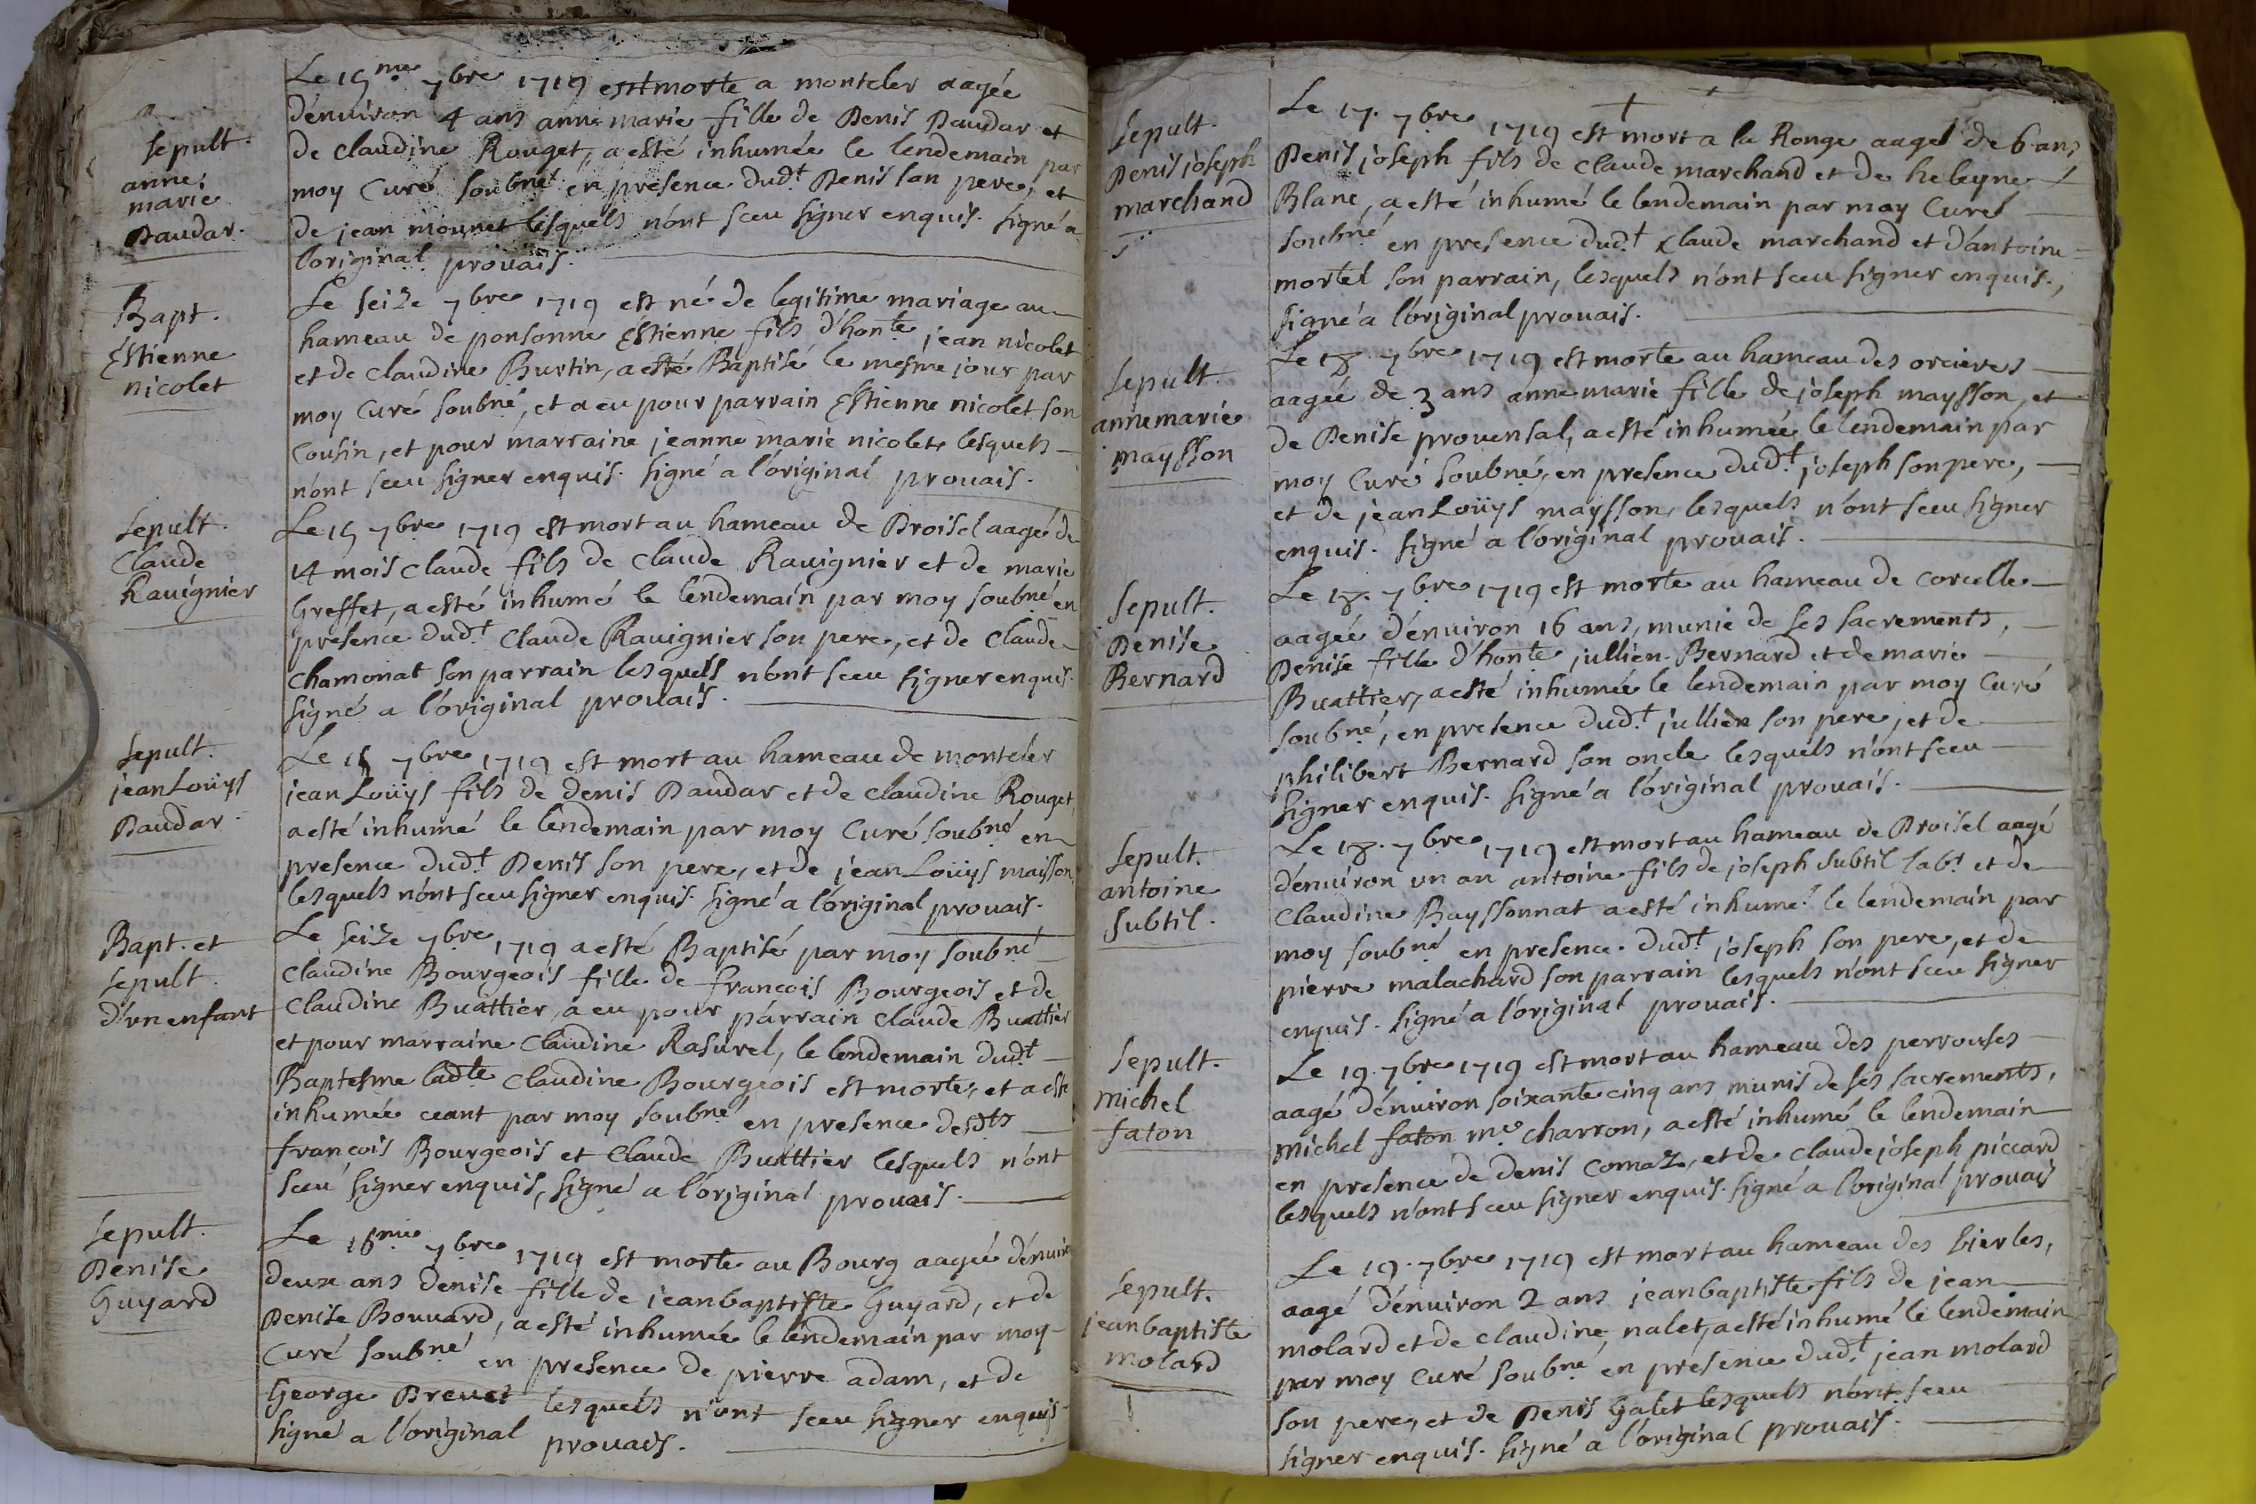 Sepult.
anne
marie
Daudar.
Le 15me 7bre 1719 est morte a monteler aagée
d'enuiron 4 ans anne marie fille de Denis Daudar et
de claudine Rouget, a esté inhumée le lendemain par
moy Curé soubné en presence dud.t Denis son pere, et
de jean mounet lesquels n'ont sceu signer enquis. signé a
l'original prouais.
Bapt.
Estienne
nicolet
Le seize 7bre 1719 est né de legitime mariage au
hameau de ponsonne Estienne fils d'honte jean nicolet
et de claudine Burtin, a esté Baptisé le mesme jour par
moy Curé soubné, et a eu pour parrain Estienne nicolet son
Cousin, et pour marraine jeanne marie nicolet, lesquels
n'ont sceu signer enquis. signé a l'original prouais.
Sepult.
Claude
Rauignier
Le 15 7bre 1719 est mort au hameau de Broisel aagé de
14 mois claude fils de claude Rauignier et de marie
Greffet, a esté inhumé le lendemain par moy soubné en
presence dud.t Claude Rauignier son pere, et de Claude
Chamonat son parrain lesquels n'ont sceu signer enquis.
signé a l'original prouais.
Sepult.
jean Loüys
Daudar.
Le 7bre 1719 est mort au hameau de monteler
jean Loüys fils de denis Daudar et de claudine Rouget,
a esté inhumé le lendemain par moy Curé soubné en
presence dud.t Denis son pere, et de jean Loüys maisson,
lesquels n'ont sceu signer enquis. signé a l'original prouais.
Bapt. et
sepult.
d'vn enfant
Le seize 7bre 1719 a esté Baptisé par moy soubné
Claudine Bourgeois fille de francois Bourgeois et de
Claudine Buattier, a eu pour parrain claude Buattier
et pour marraine Claudine Rasurel, le lendemain dud.t
Baptesme ladte Claudine Bourgeois est morte, et a esté
inhumée ceant par moy soubné en presence desdts
francois Bourgeois et Claude Buattier lesquels n'ont
sceu signer enquis, signé a l'original prouais.
Sepult.
Denise
Guyard
Le 16me 7bre 1719 est morte au Bourg aagée d'enuiron
deux ans denise fille de jean baptiste Guyard, et de
Denise Bouuard, a esté inhumée le lendemain par moy
Curé soubné en presence de pierre adam, et de
George Breuet lesquels n'ont sceu signer enquis
signé a l'original prouais.
Sepult.
Denis joseph
marchand
Le 17. 7bre 1719 est mort a la Ronge aagé de 6 ans
Denis joseph fils de Claude marchand et de heleyne
Blanc, a esté inhumé le lendemain par moy Curé
soubné en presence dud.t Claude marchand et d'antoine
mortel son parrain, lesquels n'ont sceu signer enquis,
signé a l'original prouais.
Sepult.
anne marie
maysson
Le 18. 7bre 1719 est morte au hameau des orcieres
aagée de 3 ans anne marie fille de joseph maysson, et
de Denise prouensal, a esté inhumée le lendemain par
moy Curé soubné, en presence dud.t joseph son pere,
et de jean Loüys maysson, lesquels n'ont sceu signer
enquis. signé a l'original prouais.
Sepult.
Denise
Bernard
Le 18. 7bre 1719 est morte au hameau de corcelle
aagée d'enuiron 16 ans, munie de ses sacrements,
Denise fille d'honte jullien Bernard et de marie
Buattier, a esté inhumée le lendemain par moy Curé
soubné, en presence dud.t jullien son pere, et de
philibert Bernard son oncle lesquels n'ont sceu
signer enquis. signé a l'original prouais.
Sepult.
antoine
Subtil.
Le 18. 7bre 1719 est mort au hameau de Broisel aagé
d'enuiron vn an antoine fils de joseph Subtil lab.t et de
Claudine Bayssonnat a esté inhumé le lendemain par
moy soubné en presence dud.t joseph son pere, et de
pierre malachard son parrain lesquels n'ont sceu signer
enquis. signé a l'original prouais.
Sepult.
Michel
faton
Le 19. 7bre 1719 est mort au hameau des perrouses
aagé d'enuiron soixante cinq ans munis de ses sacrements,
Michel faton me charron, a esté inhumé le lendemain
en presence de denis Comaz, et de claude joseph piccard
lesquels n'ont sceu signer enquis. signé a l'original prouais
Sepult.
jean baptiste
molard
Le 19. 7bre 1719 est mort au hameau des bierles,
aagé d'enuiron 2 ans jean baptiste fils de jean
molard et de claudine nalet, a esté inhumé le lendemain
par moy Curé soubné en presence dud.t jean molard
son pere, et de Denis Galet lesquels n'ont sceu
signer enquis. signé a l'original prouais.